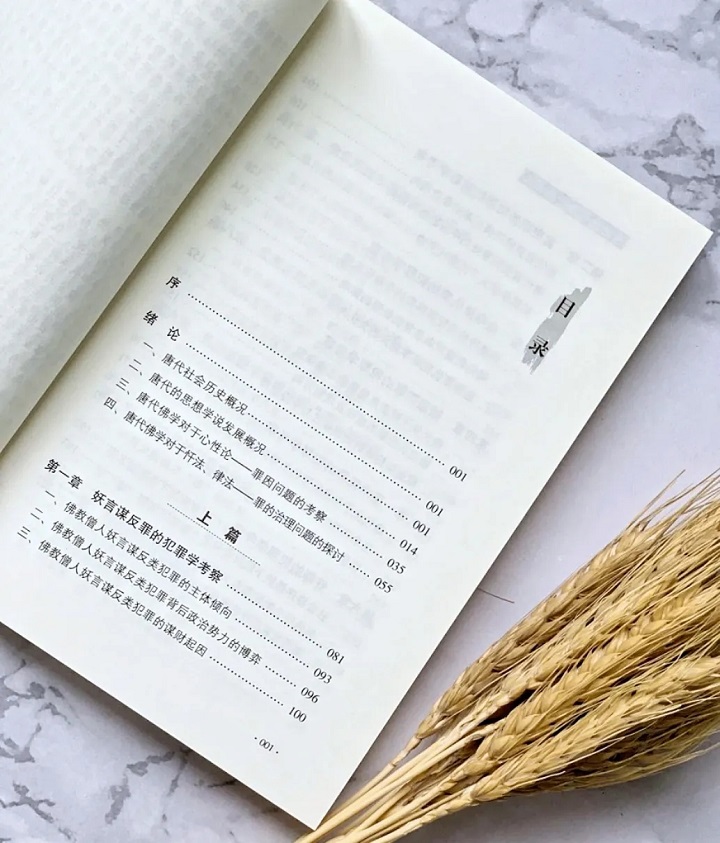 目录
序 ………… 001
绪 论 ………… 001
一、唐代社会历史概况 ………… 001
二、唐代的思想学说发展概况 ………… 014
三、唐代佛学对于心性论——罪因问题的考察 ………… 035
四、唐代佛学对于忏法、律法——罪的治理问题的探讨 …… 055
上 篇
第一章 妖言谋反罪的犯罪学考察 ………… 081
一、佛教僧人妖言谋反类犯罪的主体倾向 ………… 093
二、佛教僧人妖言谋反类犯罪背后政治势力的博弈 …… 096
三、佛教僧人妖言谋反类犯罪的谋财起因 ………… 100
· 001 ·